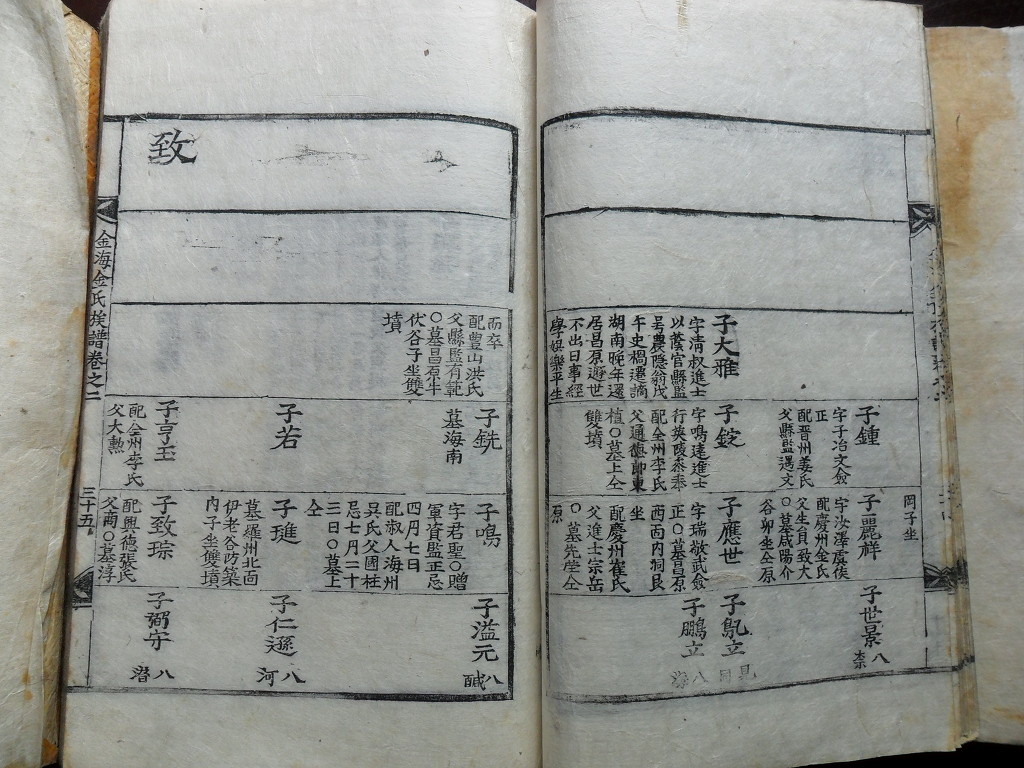 岡子坐
子大雅
字淸叔進士
以蔭官縣監
號農隱翁戊
午史禍遷謫
湖南晩年還
居昌原遯世
不出日事經
學娛樂平生
子鍾
字子冶文僉
正
配晋州姜氏
父縣監遇文
子錠
字鳴達進士
行英陵參奉
配全州李氏
父通德郞東
植〇墓上仝
雙墳
子麗祥
字汝澤虞侯
配慶州金氏
父生員致大
〇墓咸陽介
谷卯坐仝原
子應世
字瑞敬武僉
正〇墓昌原
西面內洞艮
坐
配慶州崔氏
父進士宗岳
〇墓先塋仝
原
子世景
八
子鳳立
子鵬立
八
致
而卒
配豊山洪氏
父縣監有範
〇墓昌原半
伏谷子坐雙
墳
子銑
墓海南
子若
子亨玉
配全州李氏
父大勲
子鳴
字君聖〇贈
軍資監正忌
四月七日
配淑人海州
吳氏父國柱
忌七月二十
三日〇墓上
仝
子璡
墓羅州北面
伊老谷防築
內子坐雙墳
子致琮
配興德張氏
父商〇墓淳
子溢元
八
子仁遜
八河
子弼守
八潛
金海金氏族譜卷之二
三十五